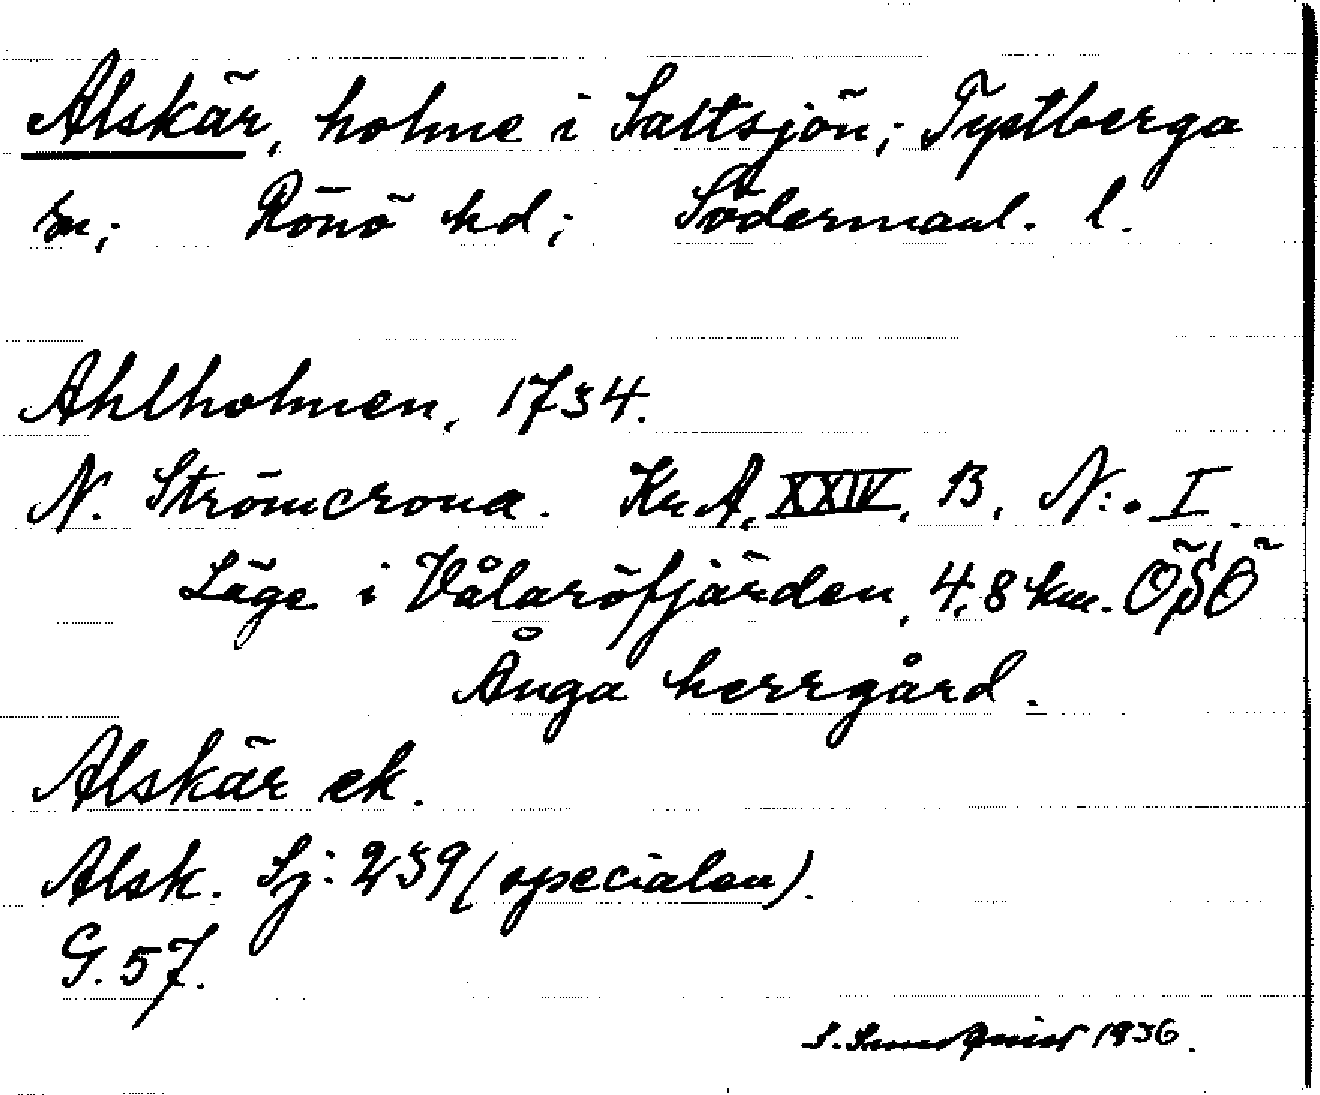 Alskär, holme i Saltsjön; Tystberga
sn; Rönö hd; Södermanl. l.
Ahlholmen, 1734.
N. Strömcrona. Kr.A. XXIV. B. N:o I.
Läge i Vålaröfjärden, 4,8 km. ÖSÖ
Ånga herrgård.
Alskär ek.
Alsk. Sj: 239 (specialen).
G. 57.
S. 1936.